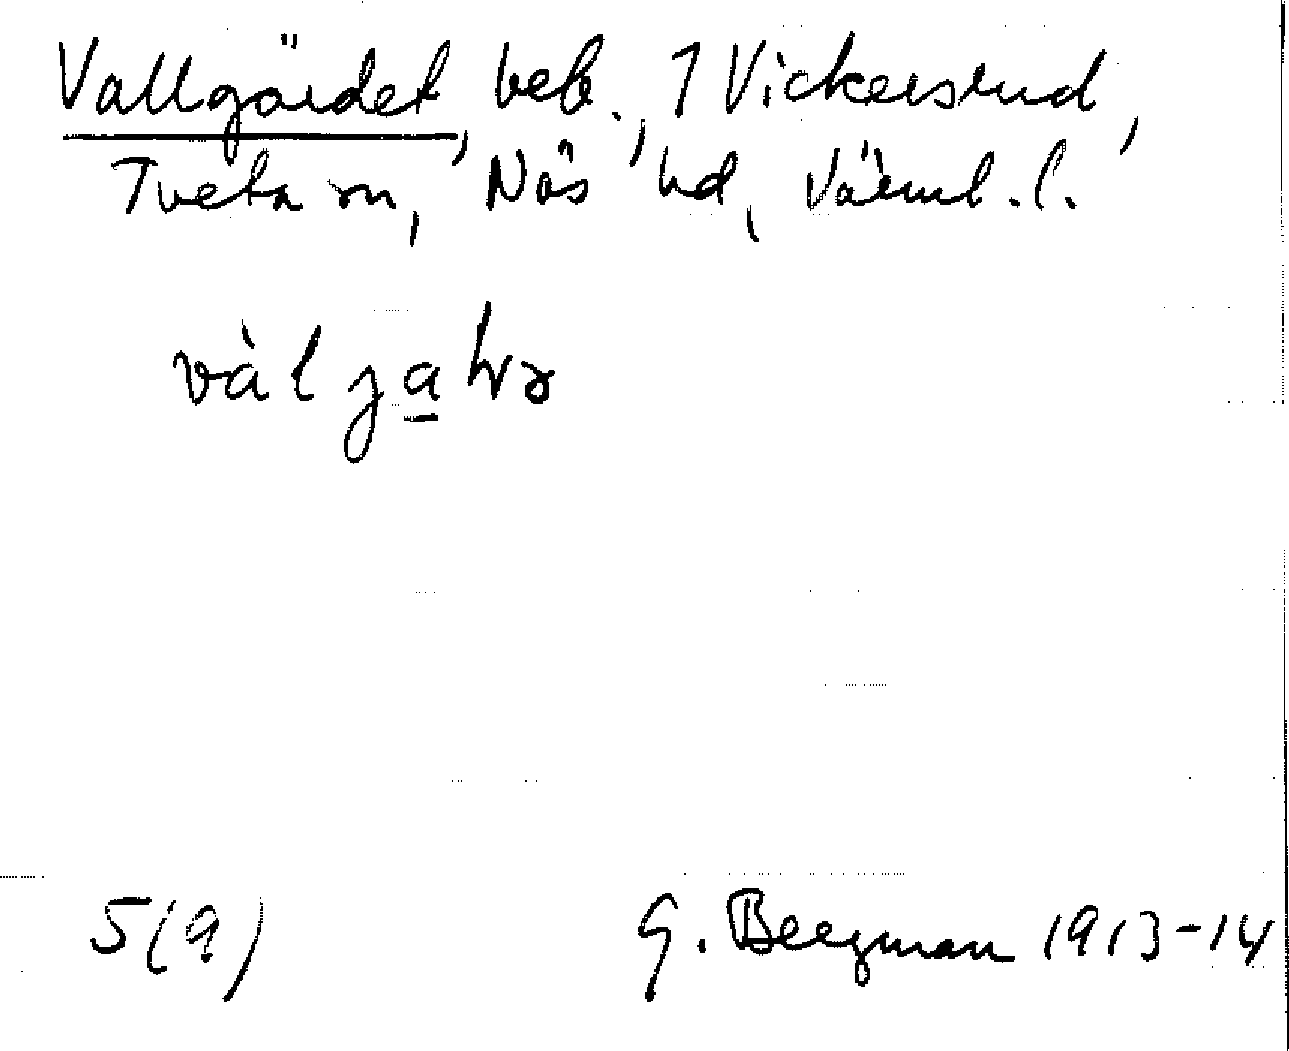 Vallgärdet, beb., 1 Vickersrud,
Tveta sn, Näs hd, Värml. l.
vàl
5(9)
G. Bergman 1913-14